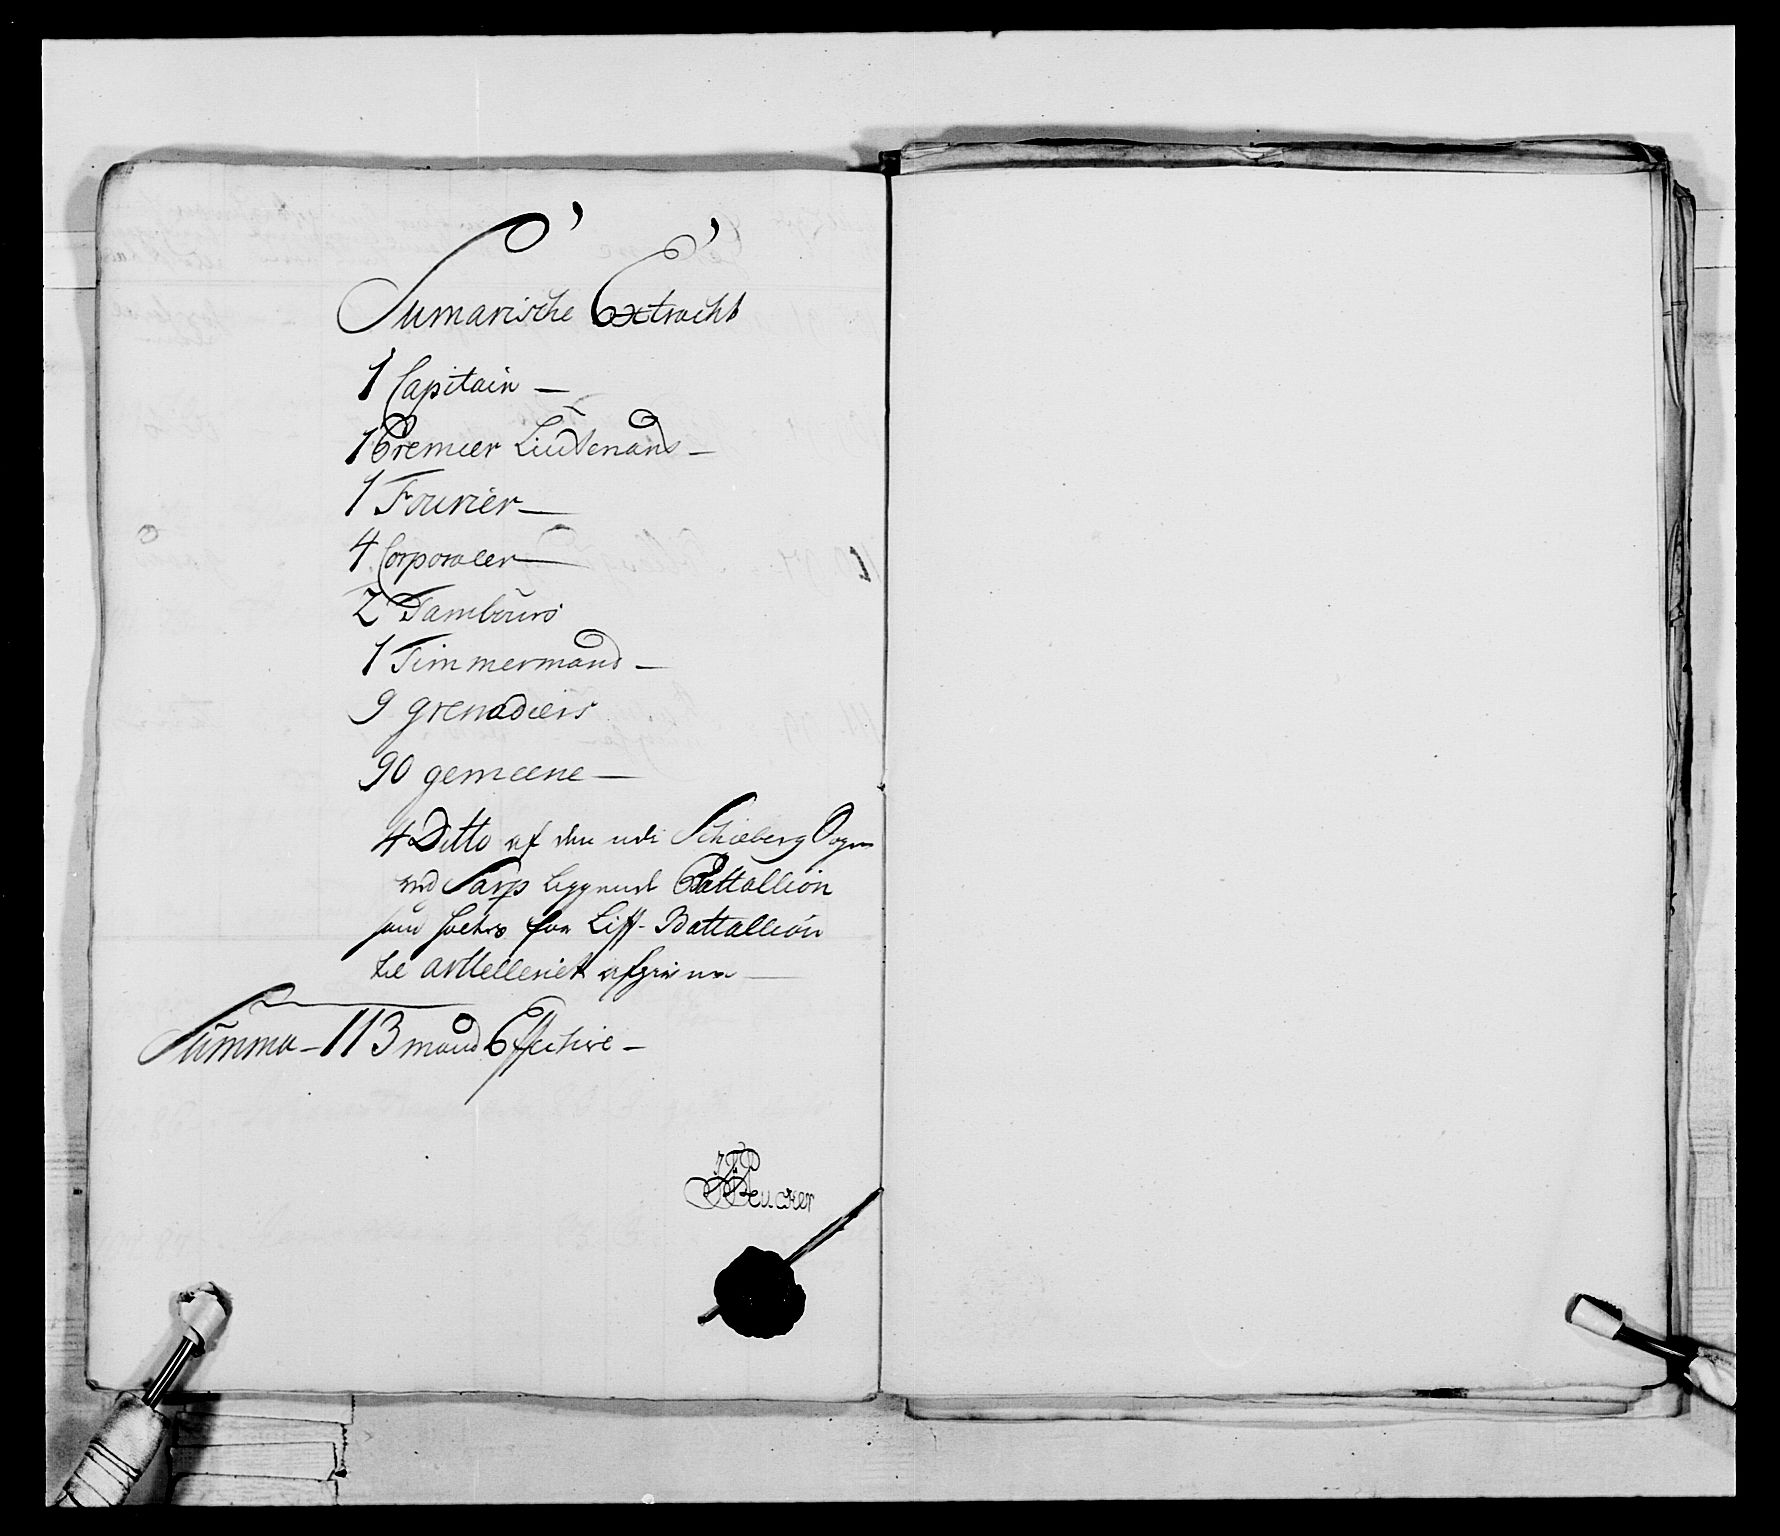 Sumarische Extracht
1 Capitain –
1 Premeer Lieutenand –
1 Fourier –
4 Corporaler –
2 Tambours
1 Timmermand –
9 grenadiers
90 gemeene –
4 Ditto af den udi Schieberg Sogn
ved Sarp liggende Battallion
som for Liff-Battallion
til artelleriet afgivne –
Summa – 113 mand Effective –
Peucker